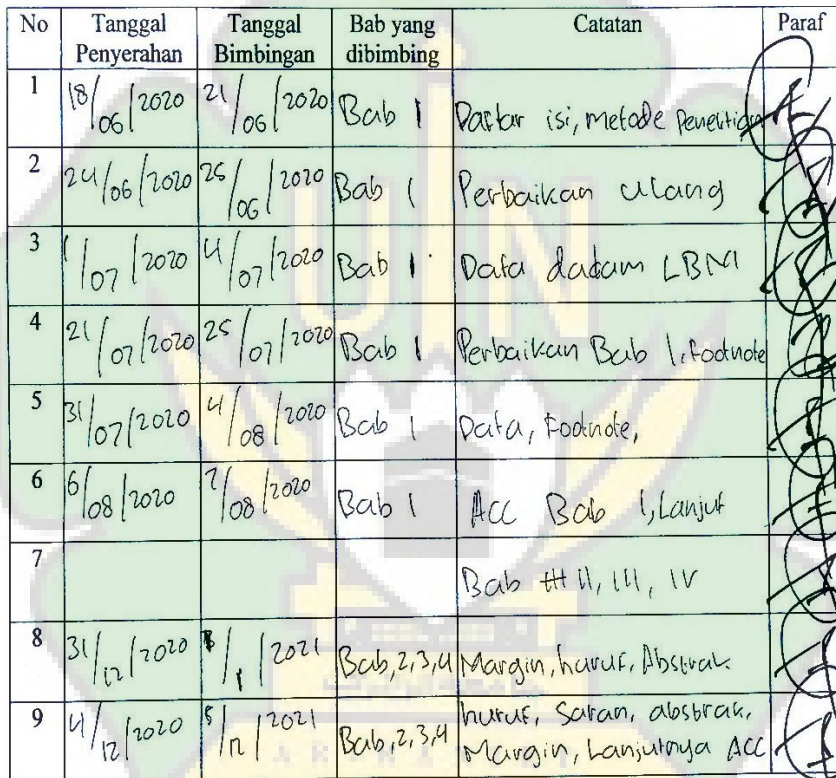 No Tanggal Penyerahan Tanggal Bimbingan Bab yang dibimbing Catatan Paraf
1 18/06/2020 21/06/2020 Bab 1 Daftar isi, metode Penelitian
2 24/06/2020 25/06/2020 Bab 1 Perbaikan ulang
3 1/07/2020 4/07/2020 Bab 1 Data dadam LBM
4 21/07/2020 25/07/2020 Bab 1 Perbaikan Bab 1, footnote
5 31/07/2020 4/08/2020 Bab 1 Data, Footnote,
6 6/08/2020 7/08/2020 Bab 1 ACC Bab 1, Lanjut
7 Bab II, III, IV
8 31/12/2020 /1/2021 Bab, 2, 3, 4 Margin, huruf, Abstrak.
9 4/12/2020 5/12/2021 Bab, 2, 3, 4 huruf, Saran, abstrak,
Margin, Lanjutnya ACC
UIN